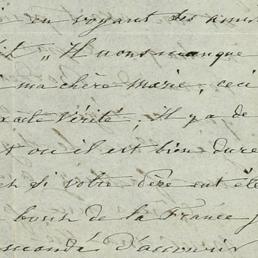 en voyant des amis
dit „ Il nous manque
ma chère marie, ceci
exacte vérité ; Il y a de
t ou il est bien dure
si votre père eut été
bout de la France
monde d'accourir